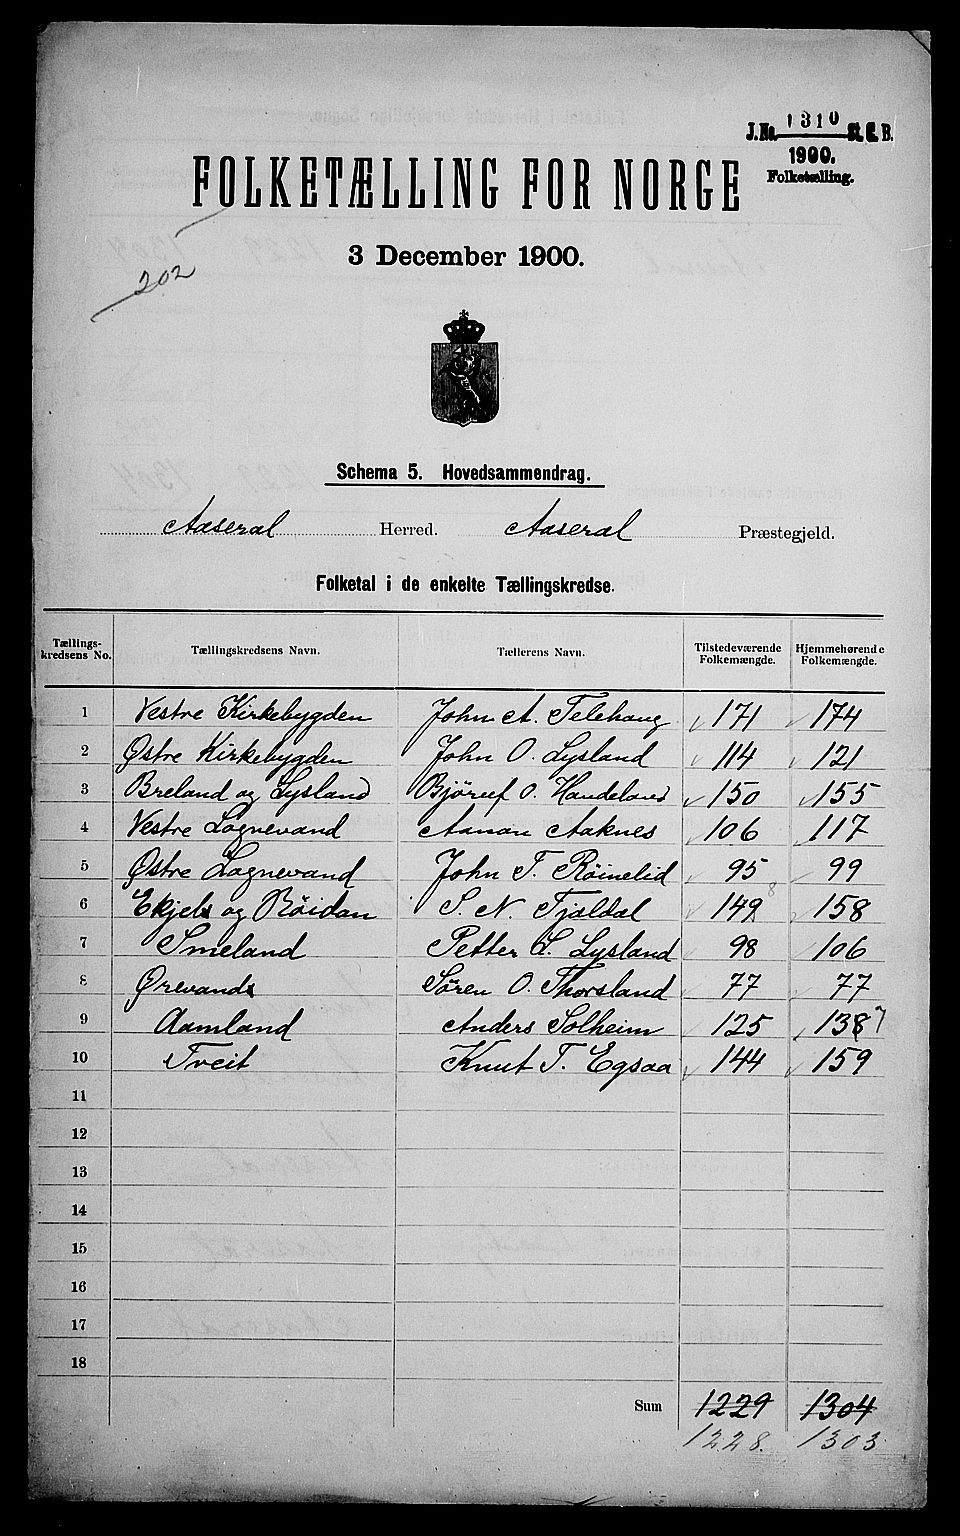 J.No. 1310 St. C. B.
1900.
Folketælling.
FOLKETÆLLING FOR NORGE
3 December 1900.
202
Schema 5. Hovedsammendrag.
Aaseral Herred. Aaseral Præstegjeld.
Folketal i de enkelte Tællingskredse.
Tællings-kredsens No. Tællingskredsens Navn. Tællerens Navn. Tilstedeværende Folkemængde. Hjemmehørende Folkemængde.
1 Vestre Kirkebygden John A. Telehaug 171 174
2 Østre Kirkebygden John O. Lysland 114 121
3 Breland og Lysland O. Handeland 150 155
4 Vestre Lognevand Aanon Aaknes 106 117
5 Østre Lognevand John T. Røinelid 95 99
6 Ekjel og Røidan S. N. Tjaldal 149 8 158
7 Smeland Petter L. Lysland 98 106
8 Ørevand Søren O. Thorsland 77 77
9 Aamland Anders Solheim 125 138 7
10 Tveit Knut T. Egsaa 144 159
11
12
13
14
15
16
17
18
Sum 1229 1304
1228. 1303